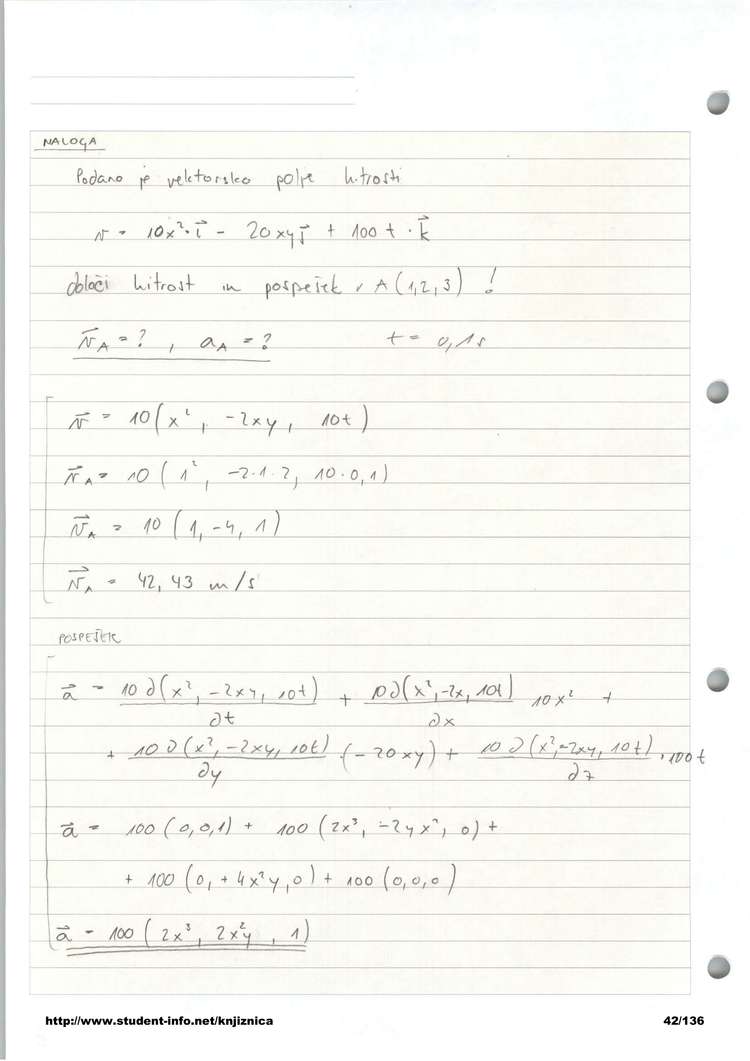 NALOGA
Podano je vektorsko polje hitrosti
v = 10x²·i⃗ - 20xyj⃗ + 100 t · k⃗
določi hitrost in pospešek v A(1,2,3) !
v⃗A = ? , aA = ? t = 0,1s
v⃗ = 10(x², -2xy, 10t)
v⃗A = 10(1², -2·1·2, 10·0,1)
v⃗A = 10(1, -4, 1)
v⃗A = 42,43 m/s
POSPEŠEK
a⃗ = 10∂(x², -2xy, 10t)/∂t + 10∂(x², -2x, 10t)/∂x 10x² +
+ 10∂(x², -2xy, 10t)/∂y ·(-20xy) + 10∂(x², -2xy, 10t)/∂z ·100t
a⃗ = 100(0,0,1) + 100(2x³, -2yx², 0) +
+ 100(0, +4x²y, 0) + 100(0,0,0)
a⃗ = 100(2x³, 2x²y, 1)
http://www.student-info.net/knjiznica 42/136